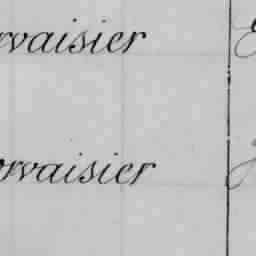 rvaisier
orvaisier